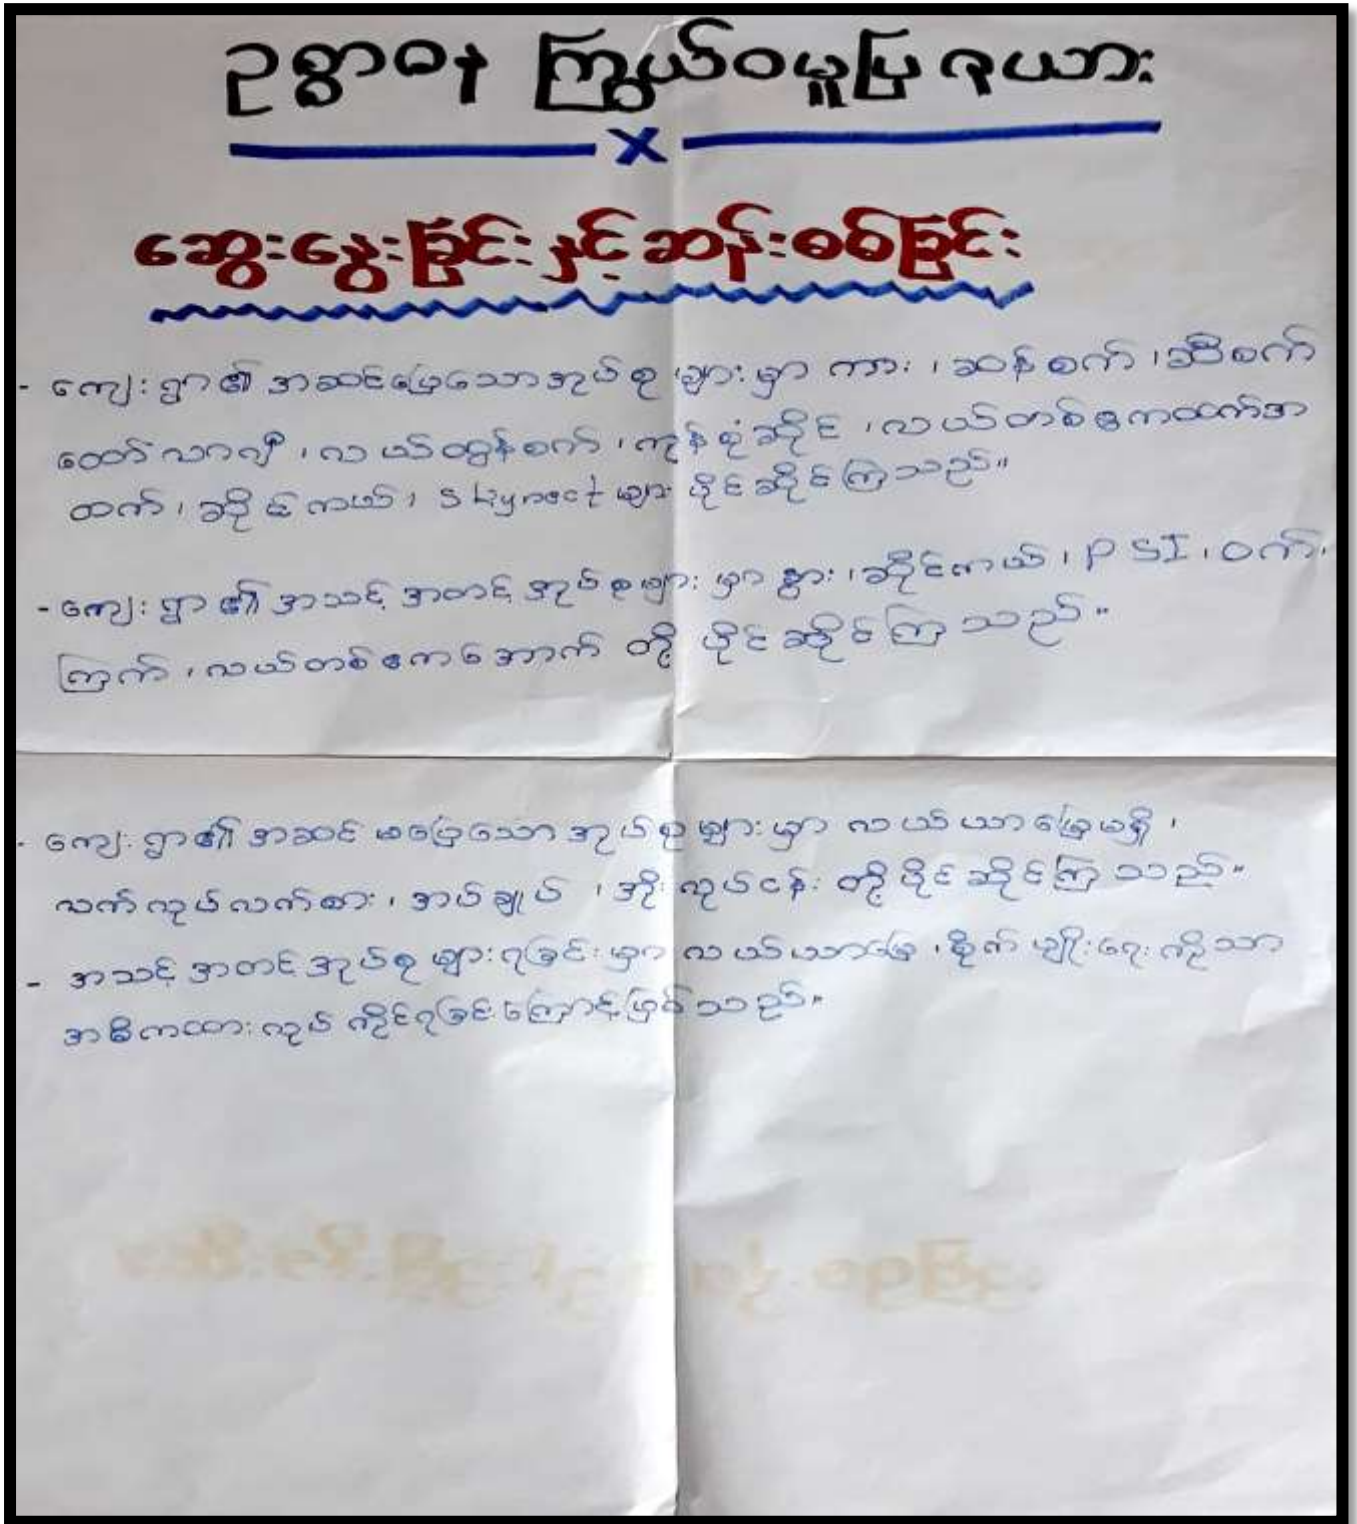 ဥစ္စာဓန ကြွယ်ဝမှုပြ ဇယား
x
ဆွေးနွေးခြင်းနှင့်ဆန်းစစ်ခြင်း
- ကျေးရွာ၏ အဆင်ပြေသောအုပ်စု များမှာ ကား၊ ဆန်စက်၊ ဆီစက်
ထော်လာဂျီ၊ လယ်ထွန်စက်၊ ကုန်စုံဆိုင်၊ လယ်တစ်ဧကထက်အ
ထက်၊ ဆိုင်ကယ်၊ Skynect များ ပိုင်ဆိုင်ကြသည်။
- ကျေးရွာ၏ အသင့်အတင့်အုပ်စုများ မှာ နွား၊ ဆိုင်ကယ်၊ PSI၊ ဝက်၊
ကြက်၊ လယ်တစ်ဧကအောက် တို့ ပိုင်ဆိုင်ကြသည်။
- ကျေးရွာ၏ အဆင်မပြေသောအုပ်စုများမှာ လယ်ယာမြေမရှိ၊
လက်လုပ်လက်စား၊ အပ်ချုပ်၊ အိုးလုပ်ငန်း တို့ပိုင်ဆိုင်ကြသည်။
- အသင့်အတင့်အုပ်စုများရခြင်းမှာ လယ်ယာမြေ၊ စိုက်ပျိုးရေးကိုသာ
အဓိကထားလုပ်ကိုင်ရခြင်းကြောင့်ဖြစ်သည်။